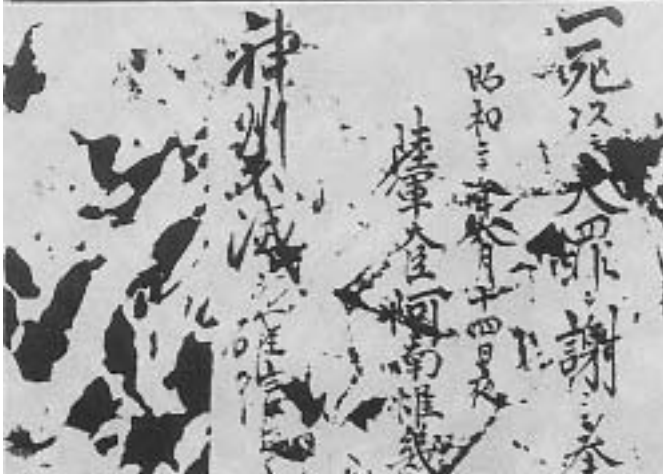 一死以テ大罪ヲ謝シ奉
昭和二十年八月十四日夜
陸軍大臣阿南惟幾
神州不滅ヲ確信